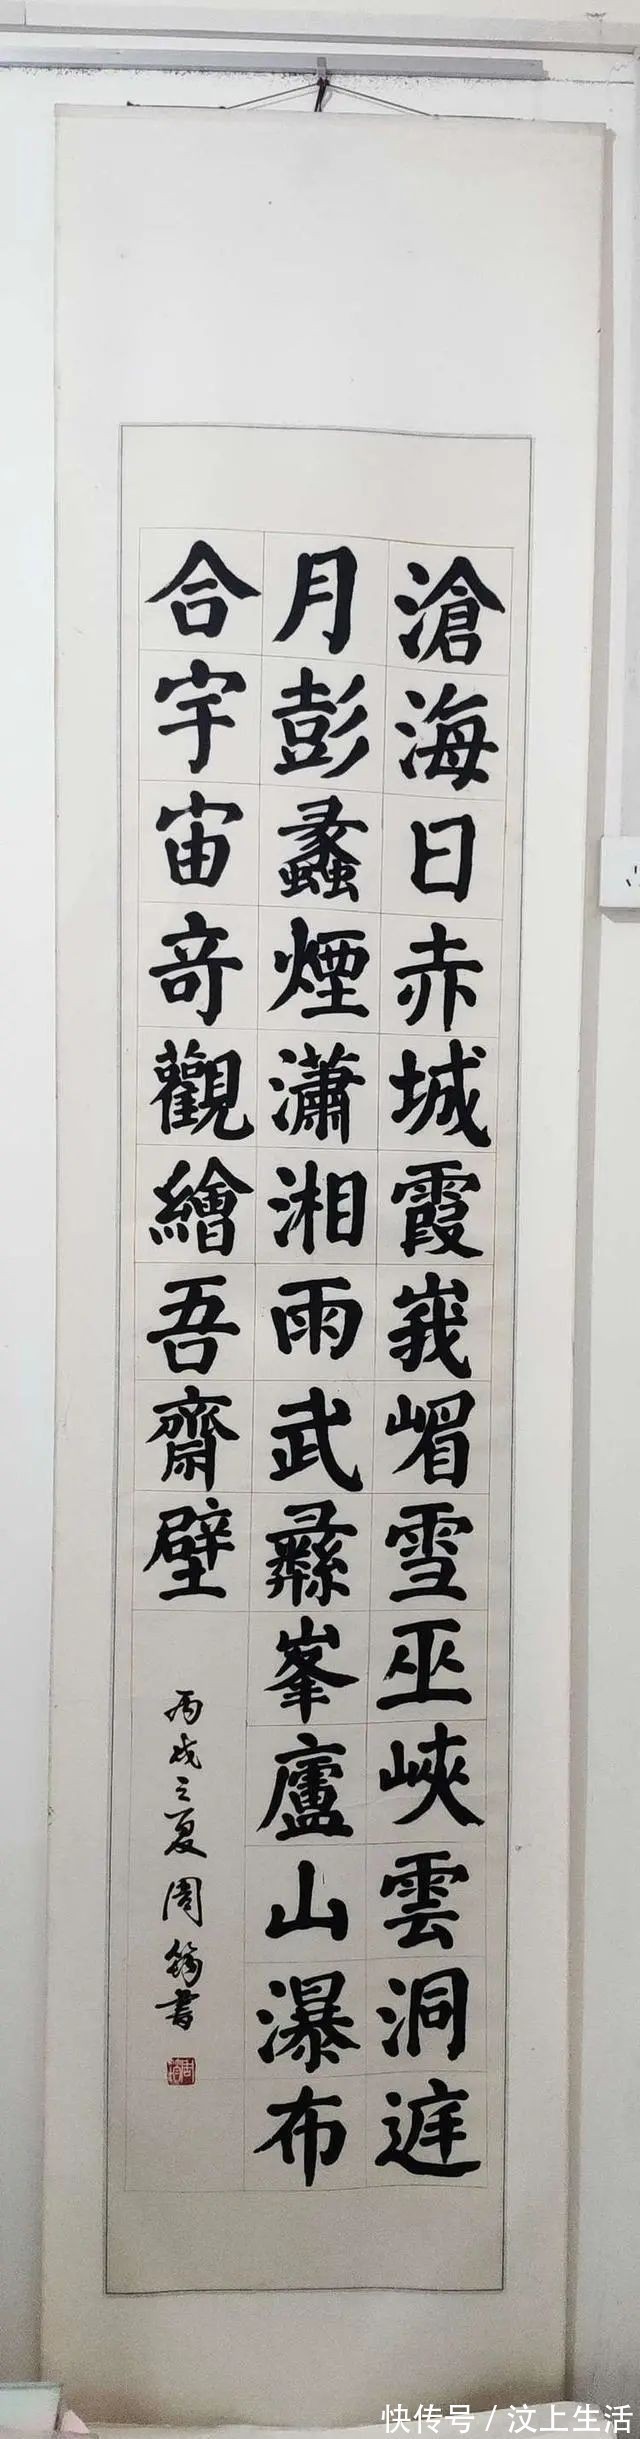 滄海日赤城霞峩嵋雪巫峽雲洞庭
月彭蠡煙瀟湘雨武彝峯廬山瀑布
合宇宙奇觀繪吾齋壁
丙戌之夏周筠書
快传号／汶上生活